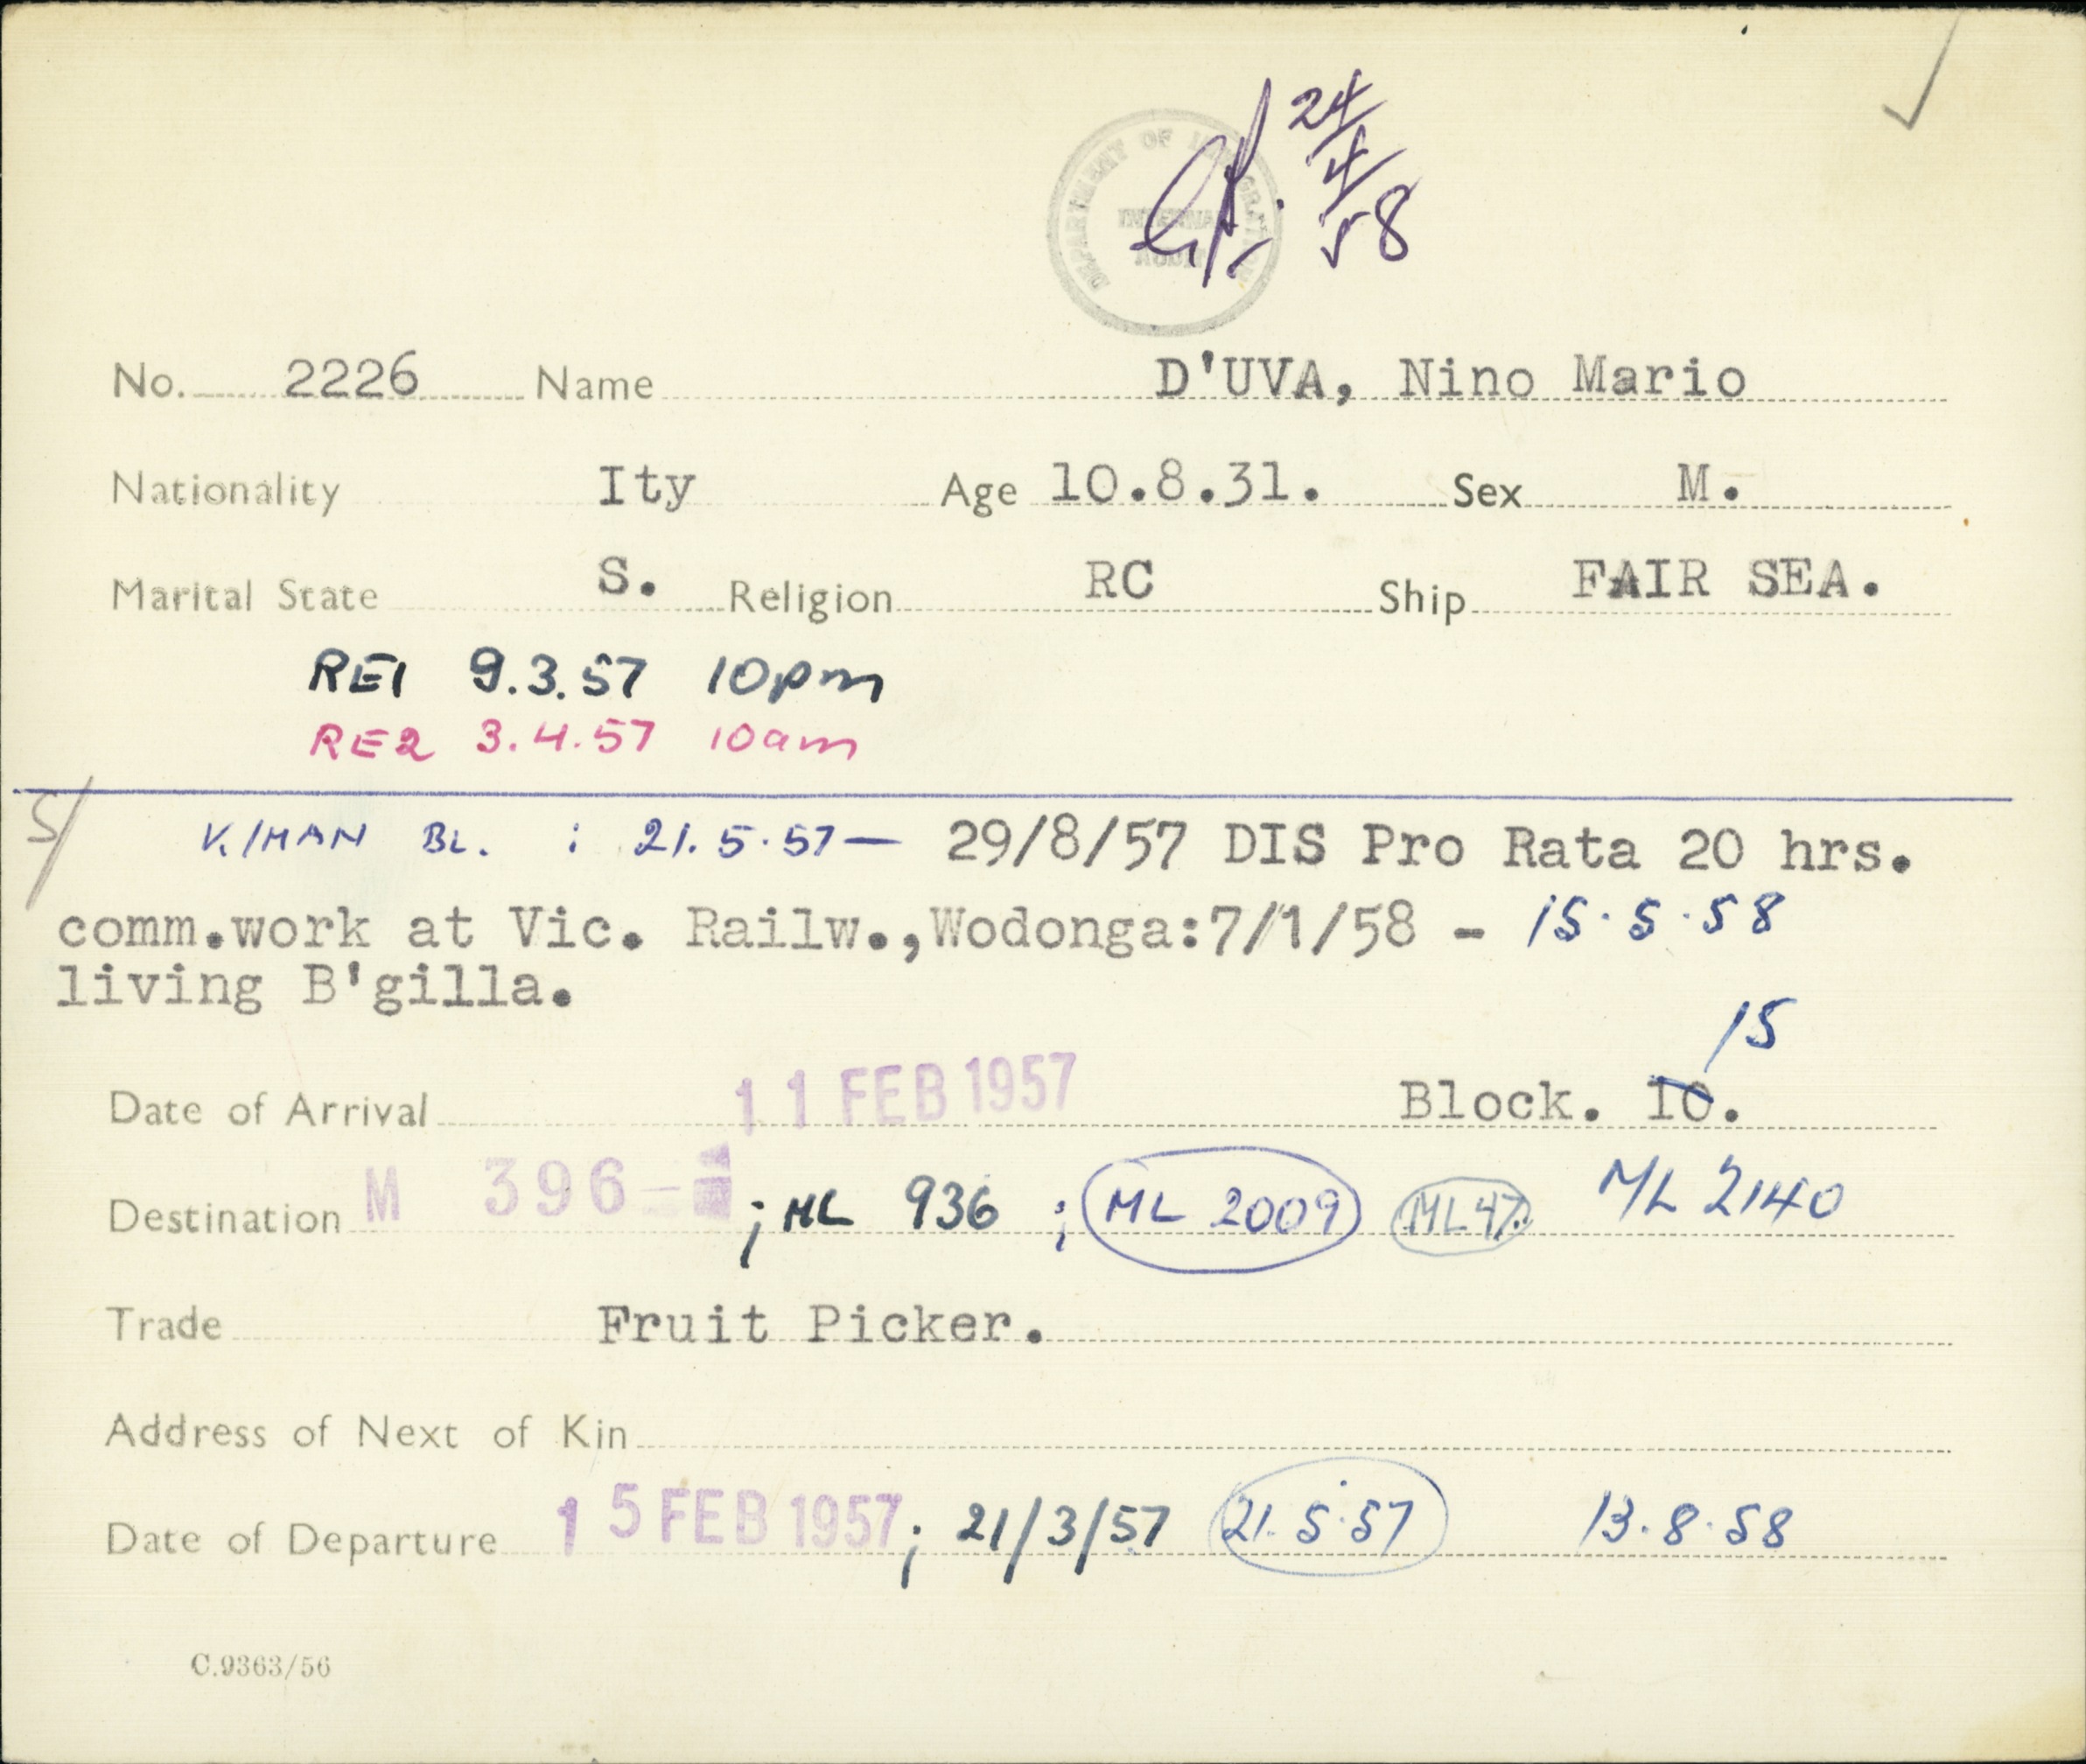 24/4/58
DEPARTMENT OF IMMIGRATION
INTERNAL
AUDIT
No. 2226 Name D'UVA, Nino Mario
Nationality Ity Age 10.8.31. Sex M.
Marital State S. Religion RC Ship FAIR SEA.
RE1 9.3.57 10pm
RE2 3.4.57 10am
S/ K/MAN BL. : 21.5.57 — 29/8/57 DIS Pro Rata 20 hrs.
comm.work at Vic. Railw.,Wodonga:7/1/58 - 15.5.58
living B'gilla.
15
Date of Arrival 11 FEB 1957 Block. 10.
Destination M 396- ; ML 936 ; ML 2009 ML47 ML 2140
Trade Fruit Picker.
Address of Next of Kin
Date of Departure 15 FEB 1957 ; 21/3/57 21.5.57 13.8.58
C.9363/56